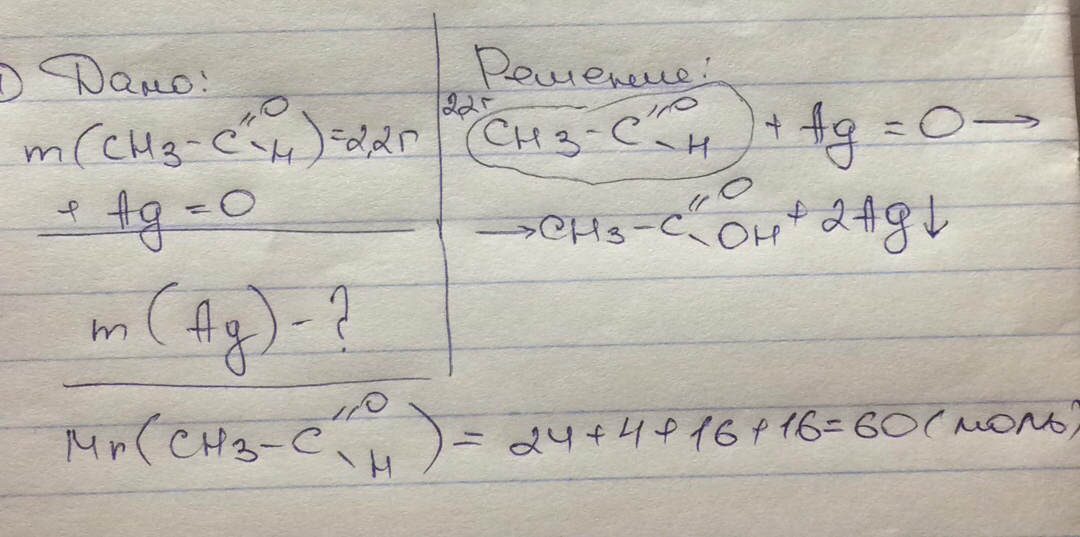 1) Дано:
m(CH3-C=O-H)=2,2г
+ Ag=O
m(Ag)-?
Решение:
2,2г
CH3-C=O-H + Ag=O→
→CH3-C=O-OH+2Ag↓
Mr(CH3-C=O-H)=24+4+16+16=60(моль)